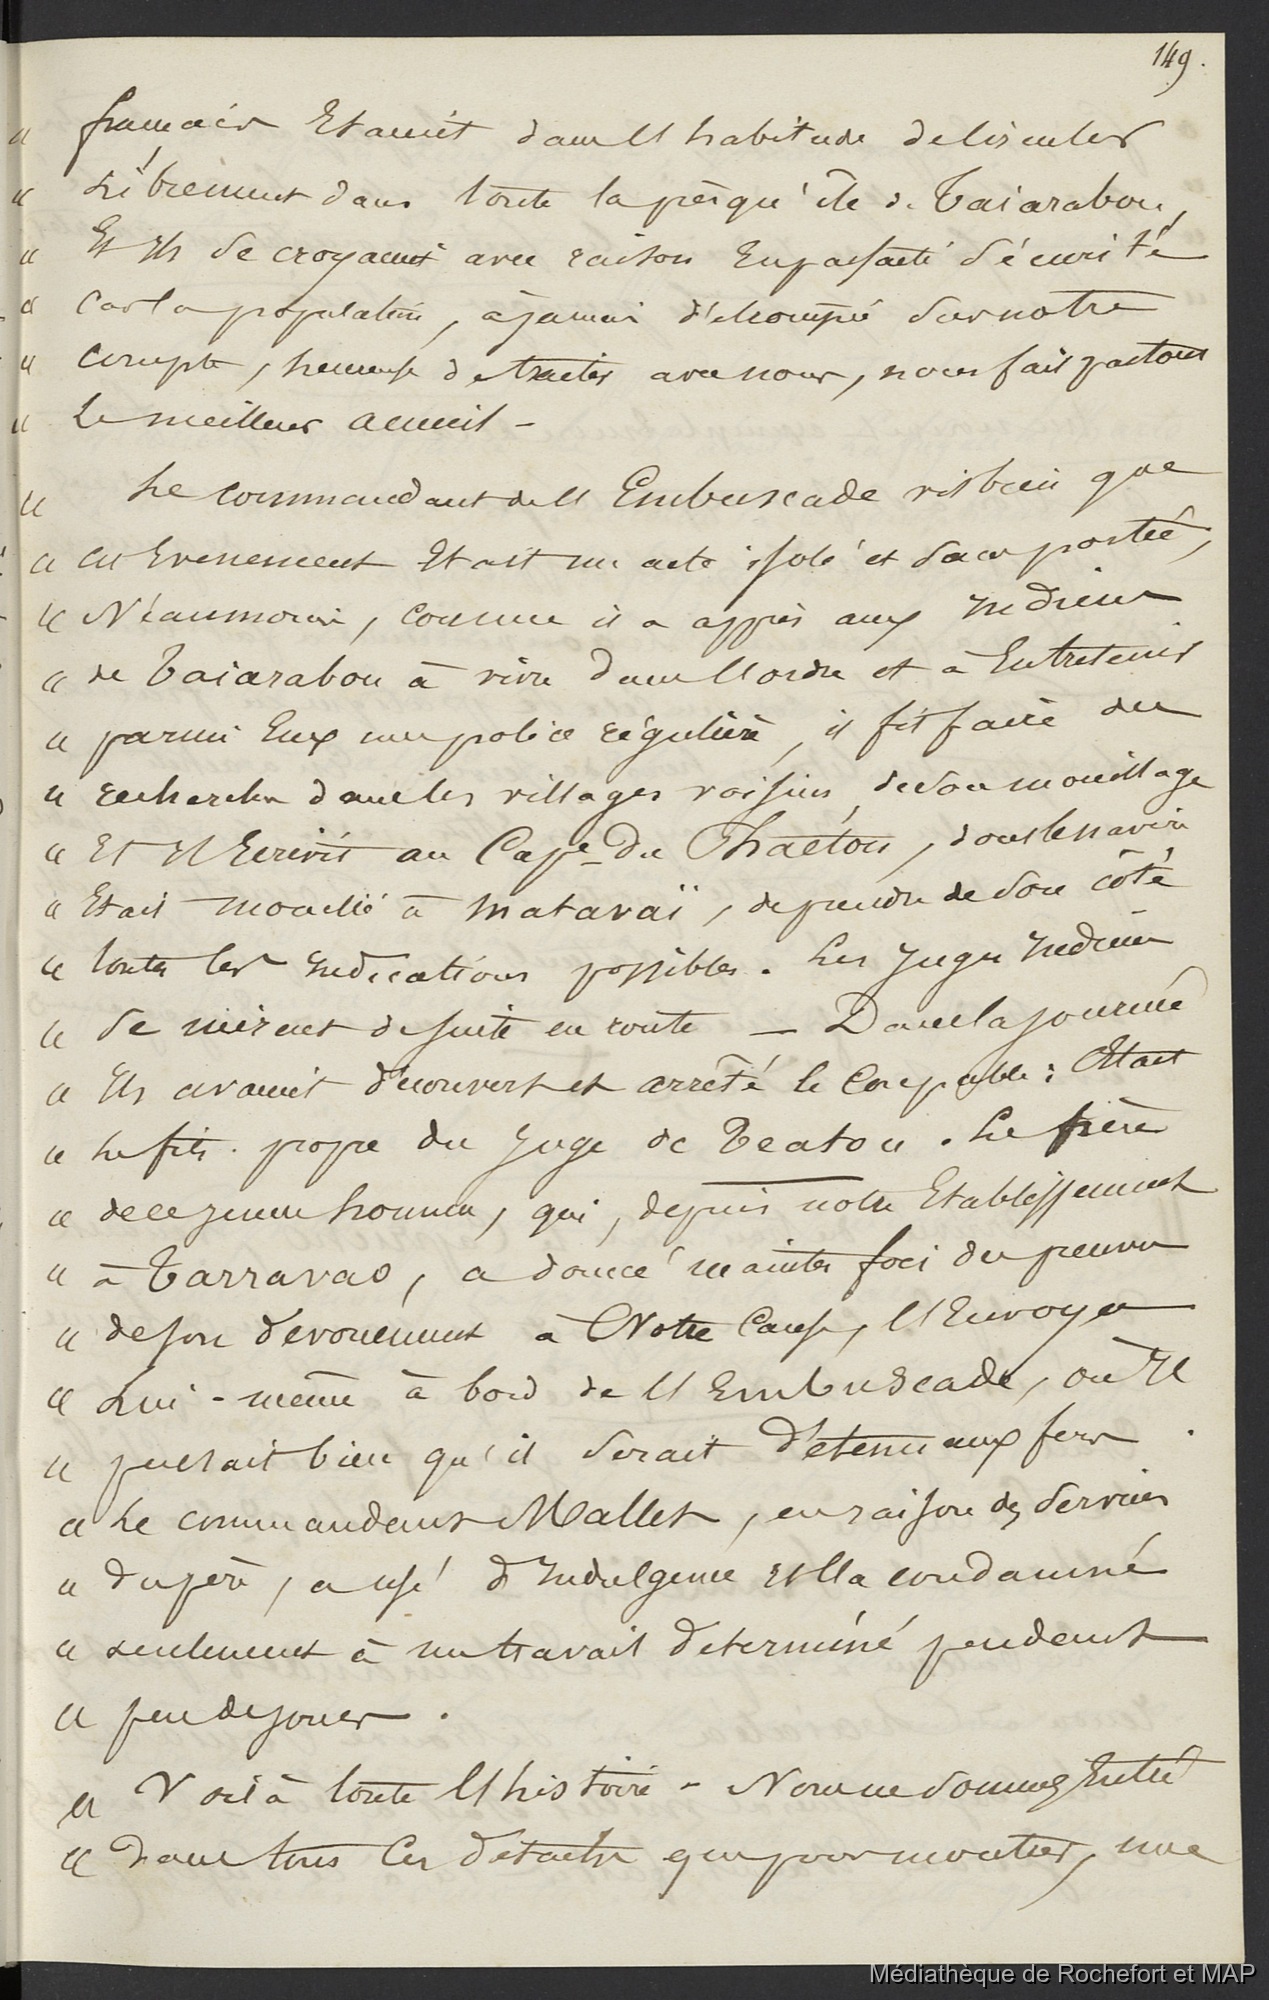 149.
" français Etaient dans l'habitude de circuler
" Librement dans toute la presqu'ile de Taiarabou,
" Et Ils se croyaient avec raison En parfaite sécurité
" Car la population, à jamais détrompée sur notre
" compte, heureuse de traiter avec nous, nous fait partout
" Le meilleur accueil -
" Le commandant de l'Embuscade vit bien que
" cet Evenement Etait un acte isolé et sans portée,
" Néanmoins, comme il a appris aux Indiens
" de Taiarabou à vivre dans l'ordre et à Entretenir
" parmi Eux une police régulière, il fit faire des
" recherches dans les villages voisins de son mouillage
" Et Il Ecrivit au Cape. Du Phaéton, dont le navire
" Etait mouillé à Mataraï, de prendre de son côté
" toutes les Indications possibles. Les Juges Indiens
" se mirent de suite en route — Dans la journée
" Ils avaient découvert et arrêté le Coupable ; C'Etait
" Le fils propre du Juge de Teatou. Le père
" de ce jeune homme, qui, depuis notre Etablissement
" à Tarravao, a donné maintes fois des preuves
" de son dévouement à Notre Cause, l'Envoya
" Lui-même à bord de l'Embuscade, où Il
" pensait bien qu'il serait détenu aux fers.
" Le commandant Mallet, en raison des services
" du père, a usé d'Indulgence et l'a condamné
" seulement à un travail déterminé pendant
" peu de jours.
" Voilà toute l'histoire - Nous ne sommes Entré
" dans tous Ces détails que pour montrer, une
Médiathèque de Rochefort et MAP